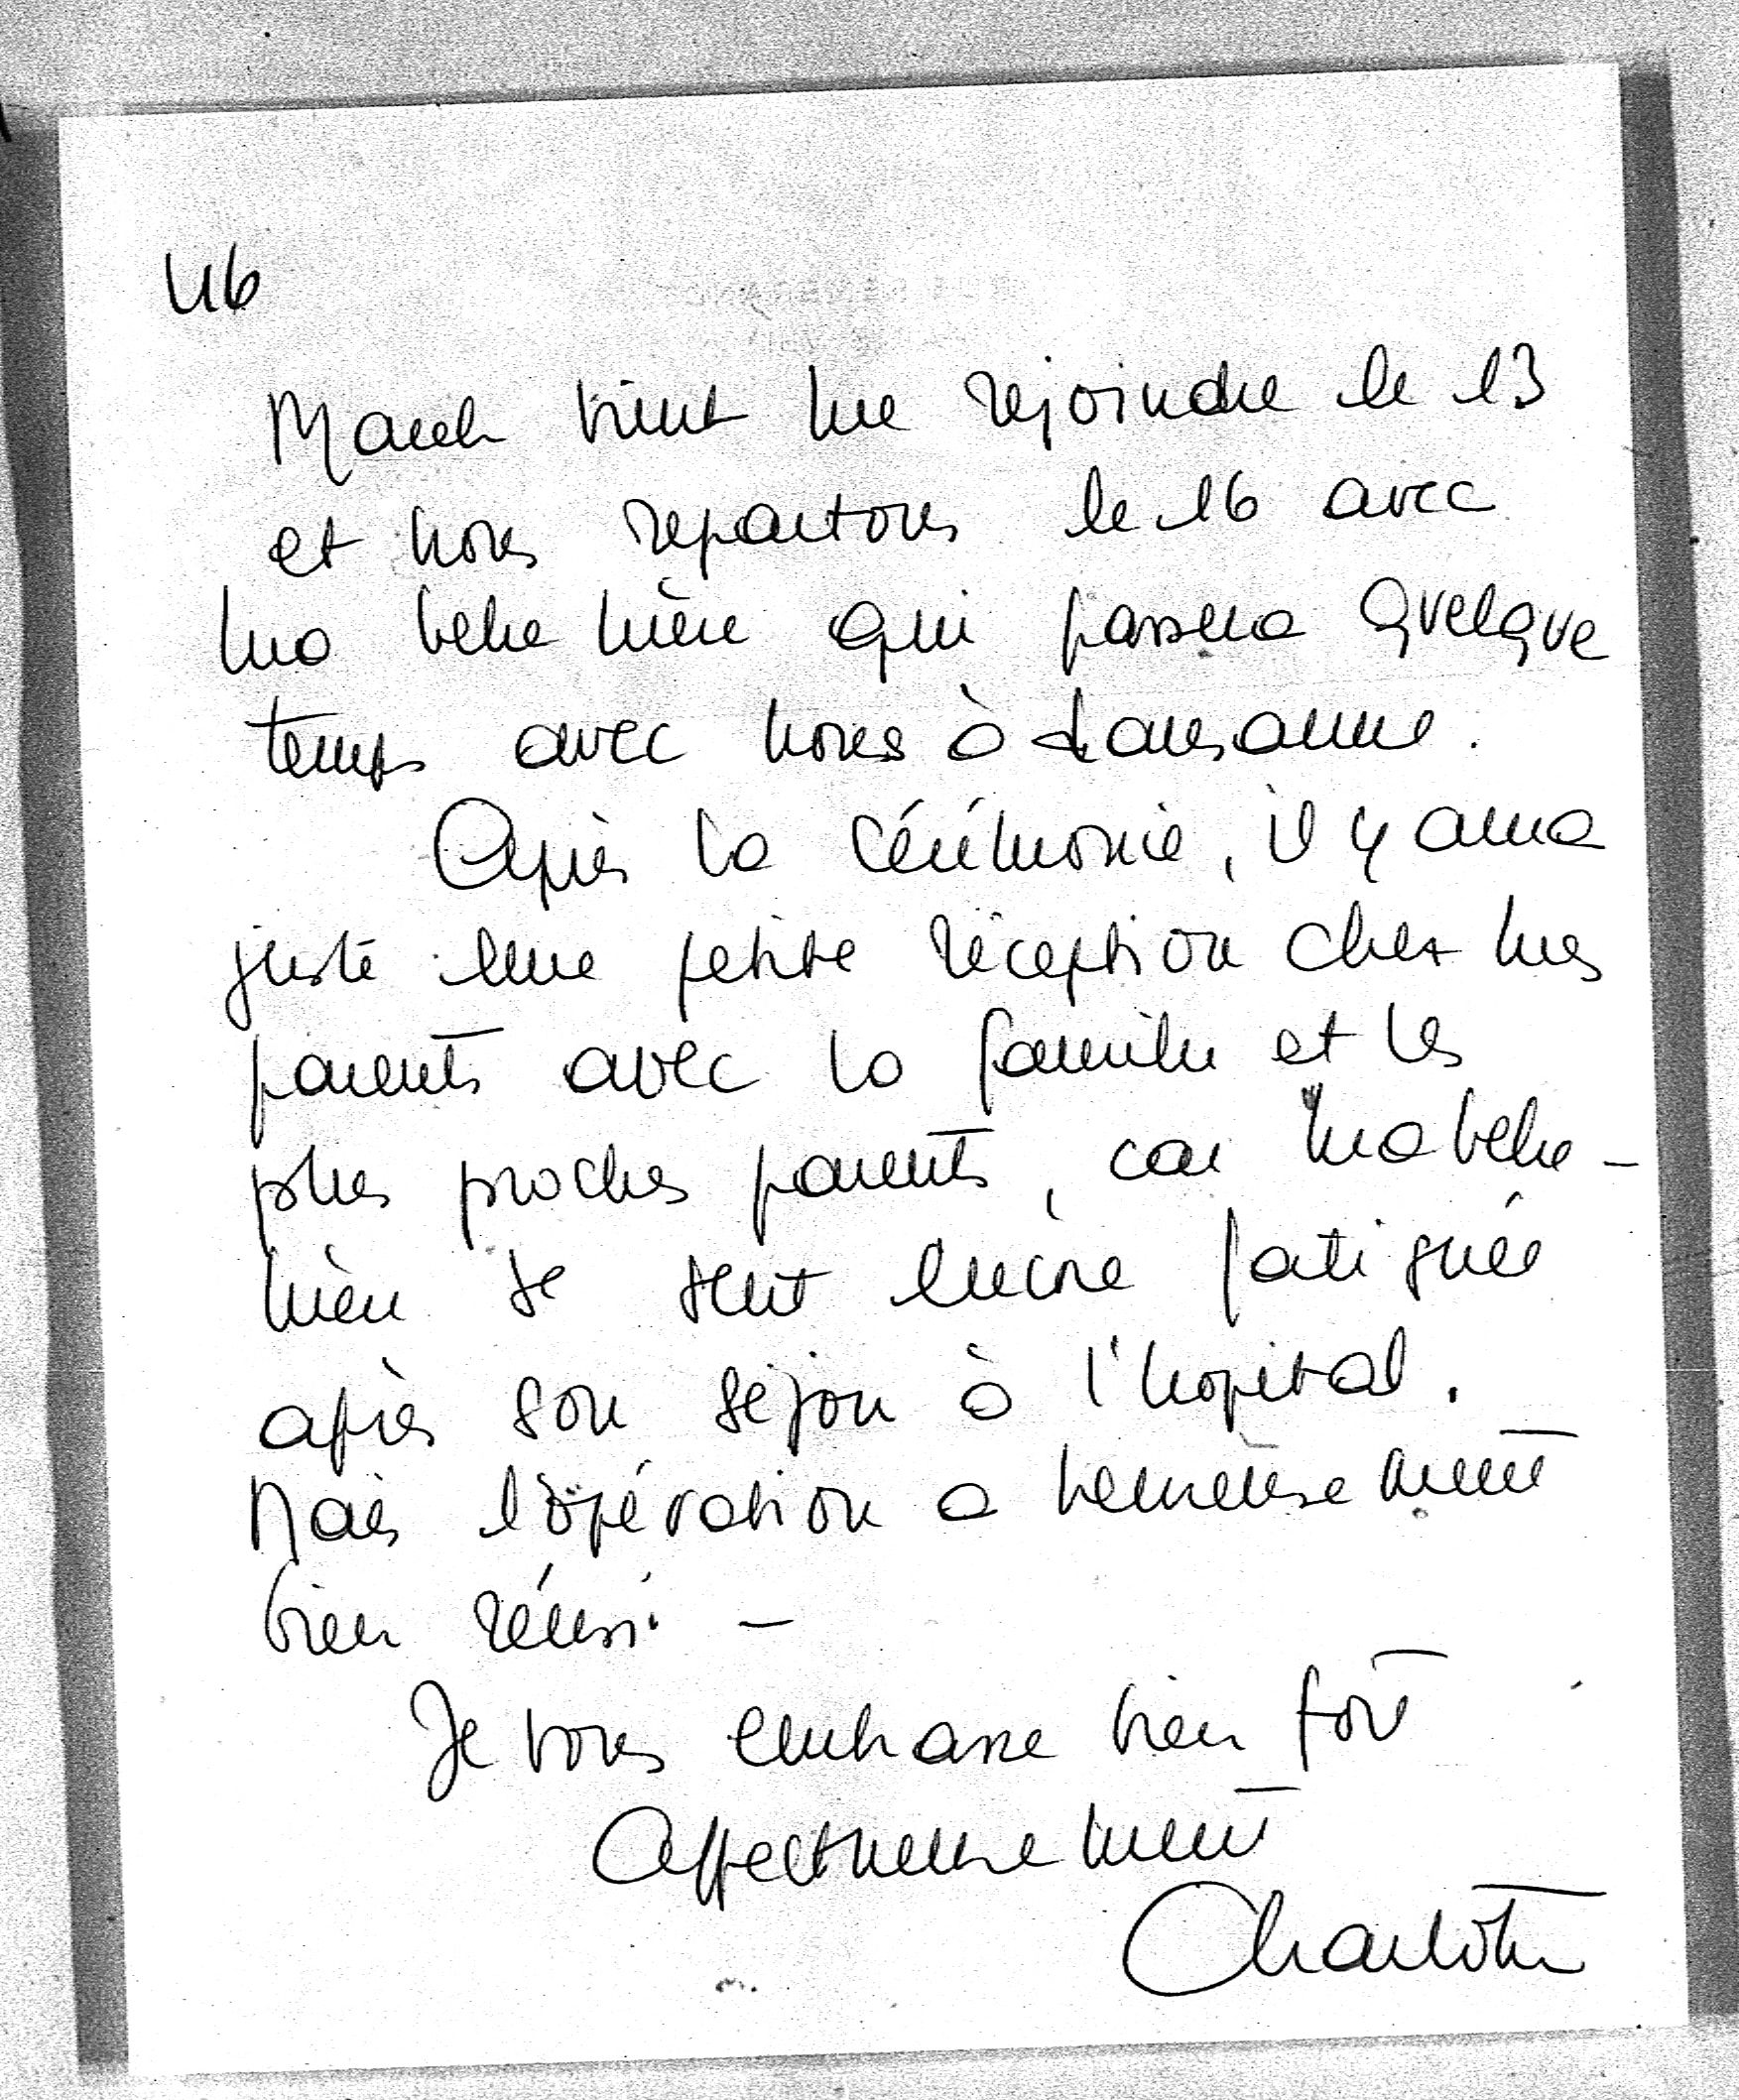 46
Marek vient me rejoindre le 13
et nous repartons le 16 avec
ma belle mère qui passera quelque
temps avec nous à Lausanne.
Après la cérémonie, il y aura
juste une petite réception chez mes
parents avec la famille et les
plus proches parents, car ma belle-
mère se sent encore fatiguée
après son séjour à l'hopital.
Mais l'opération a heureusement
bien réussi -
Je vous embrasse bien fort
Affectueusement
Charlotte